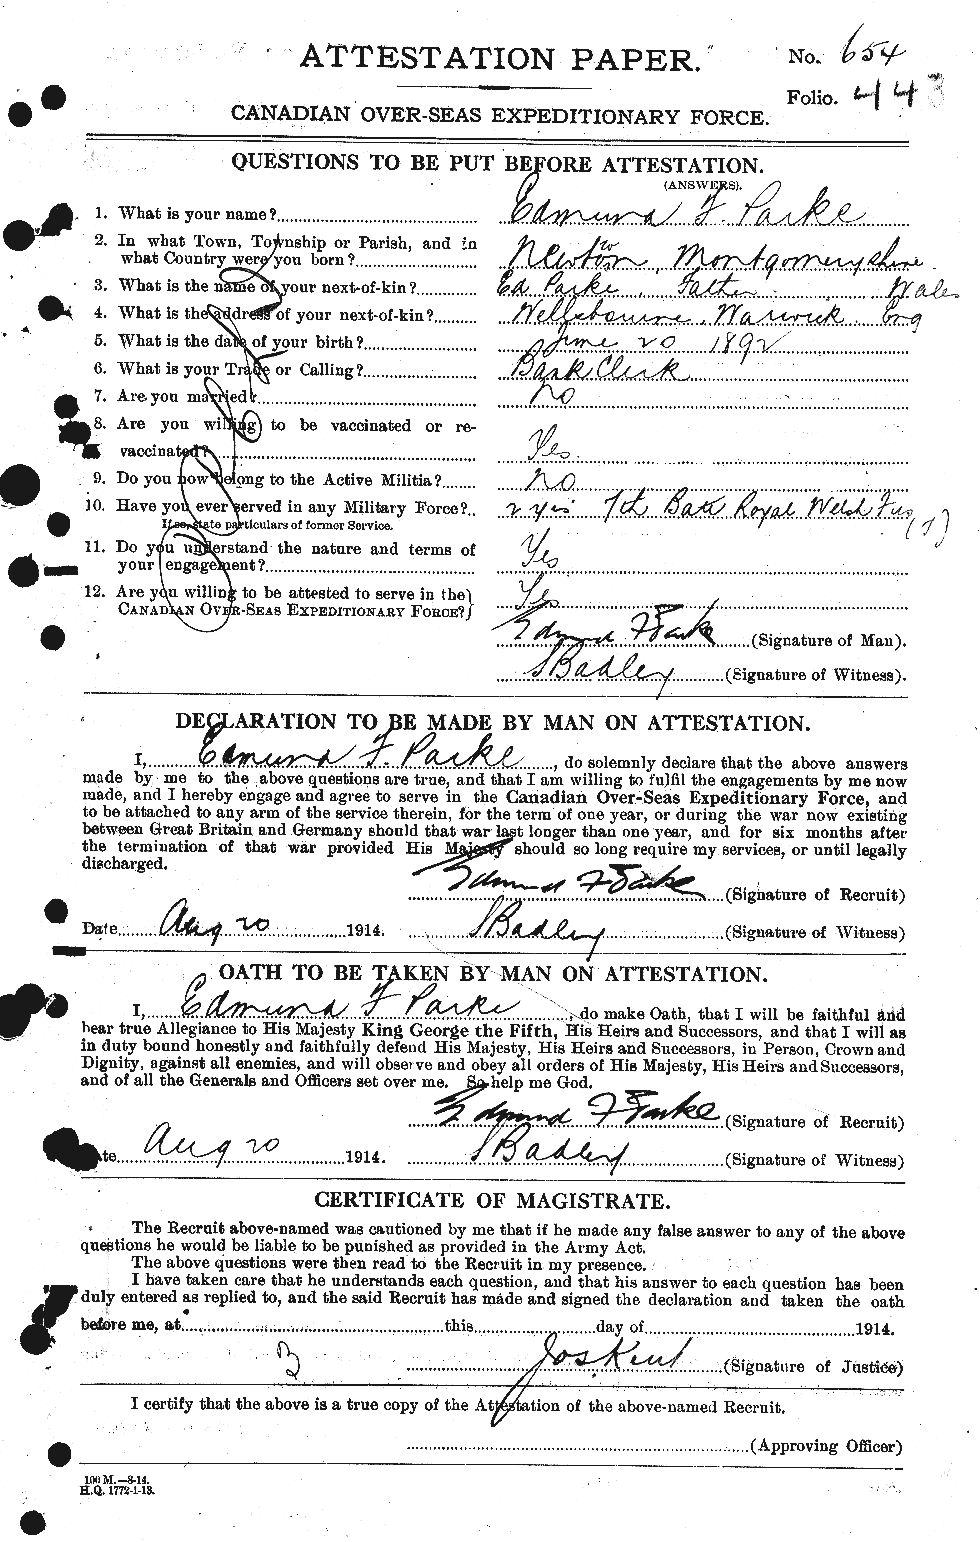 ATTESTATION PAPER.
No. 654
Folio. 443
CANADIAN OVER-SEAS EXPEDITIONARY FORCE.
QUESTIONS TO BE PUT BEFORE ATTESTATION.
(ANSWERS).
1. What is your name? Edmund F. Parke
2. In what Town, Township or Parish, and in
what Country were you born? Newtown, Montgomeryshire
3. What is the name of your next-of-kin? Ed. Parke, Father Wales
4. What is the address of your next-of-kin? Wellesbourne, Warwick Eng
5. What is the date of your birth? June 20 1892
6. What is your Trade or Calling? Bank Clerk
7. Are you married? No
8. Are you willing to be vaccinated or re-
vaccinated? Yes.
9. Do you now belong to the Active Militia? No
10. Have you ever served in any Military Force? 2 yrs 7th Batt Royal Welsh Fus (T)
If so, state particulars of former Service.
11. Do you understand the nature and terms of
your engagement? Yes
12. Are you willing to be attested to serve in the
CANADIAN OVER-SEAS EXPEDITIONARY FORCE? Yes
Edmund F Parke (Signature of Man).
S Badley (Signature of Witness).
DECLARATION TO BE MADE BY MAN ON ATTESTATION.
I, Edmund F. Parke, do solemnly declare that the above answers
made by me to the above questions are true, and that I am willing to fulfil the engagements by me now
made, and I hereby engage and agree to serve in the Canadian Over-Seas Expeditionary Force, and
to be attached to any arm of the service therein, for the term of one year, or during the war now existing
between Great Britain and Germany should that war last longer than one year, and for six months after
the termination of that war provided His Majesty should so long require my services, or until legally
discharged.
Edmund F Parke (Signature of Recruit)
Date Aug 20 1914. S Badley (Signature of Witness)
OATH TO BE TAKEN BY MAN ON ATTESTATION.
I, Edmund F Parke, do make Oath, that I will be faithful and
bear true Allegiance to His Majesty King George the Fifth, His Heirs and Successors, and that I will as
in duty bound honestly and faithfully defend His Majesty, His Heirs and Successors, in Person, Crown and
Dignity, against all enemies, and will observe and obey all orders of His Majesty, His Heirs and Successors,
and of all the Generals and Officers set over me. So help me God.
Edmund F Parke (Signature of Recruit)
Date Aug 20 1914. S Badley (Signature of Witness)
CERTIFICATE OF MAGISTRATE.
The Recruit above-named was cautioned by me that if he made any false answer to any of the above
questions he would be liable to be punished as provided in the Army Act.
The above questions were then read to the Recruit in my presence.
I have taken care that he understands each question, and that his answer to each question has been
duly entered as replied to, and the said Recruit has made and signed the declaration and taken the oath
before me, at this day of 1914.
B Jos Kent (Signature of Justice)
I certify that the above is a true copy of the Attestation of the above-named Recruit.
(Approving Officer)
100 M.—8-14.
H.Q. 1772-1-13.